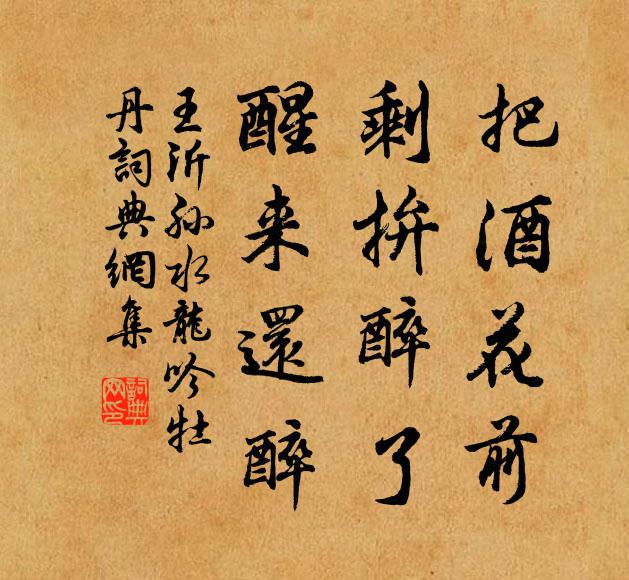 把酒花前
剩拚醉了
醒来還醉
王沂孙水龍吟牡
丹詞典網集
詞典網印